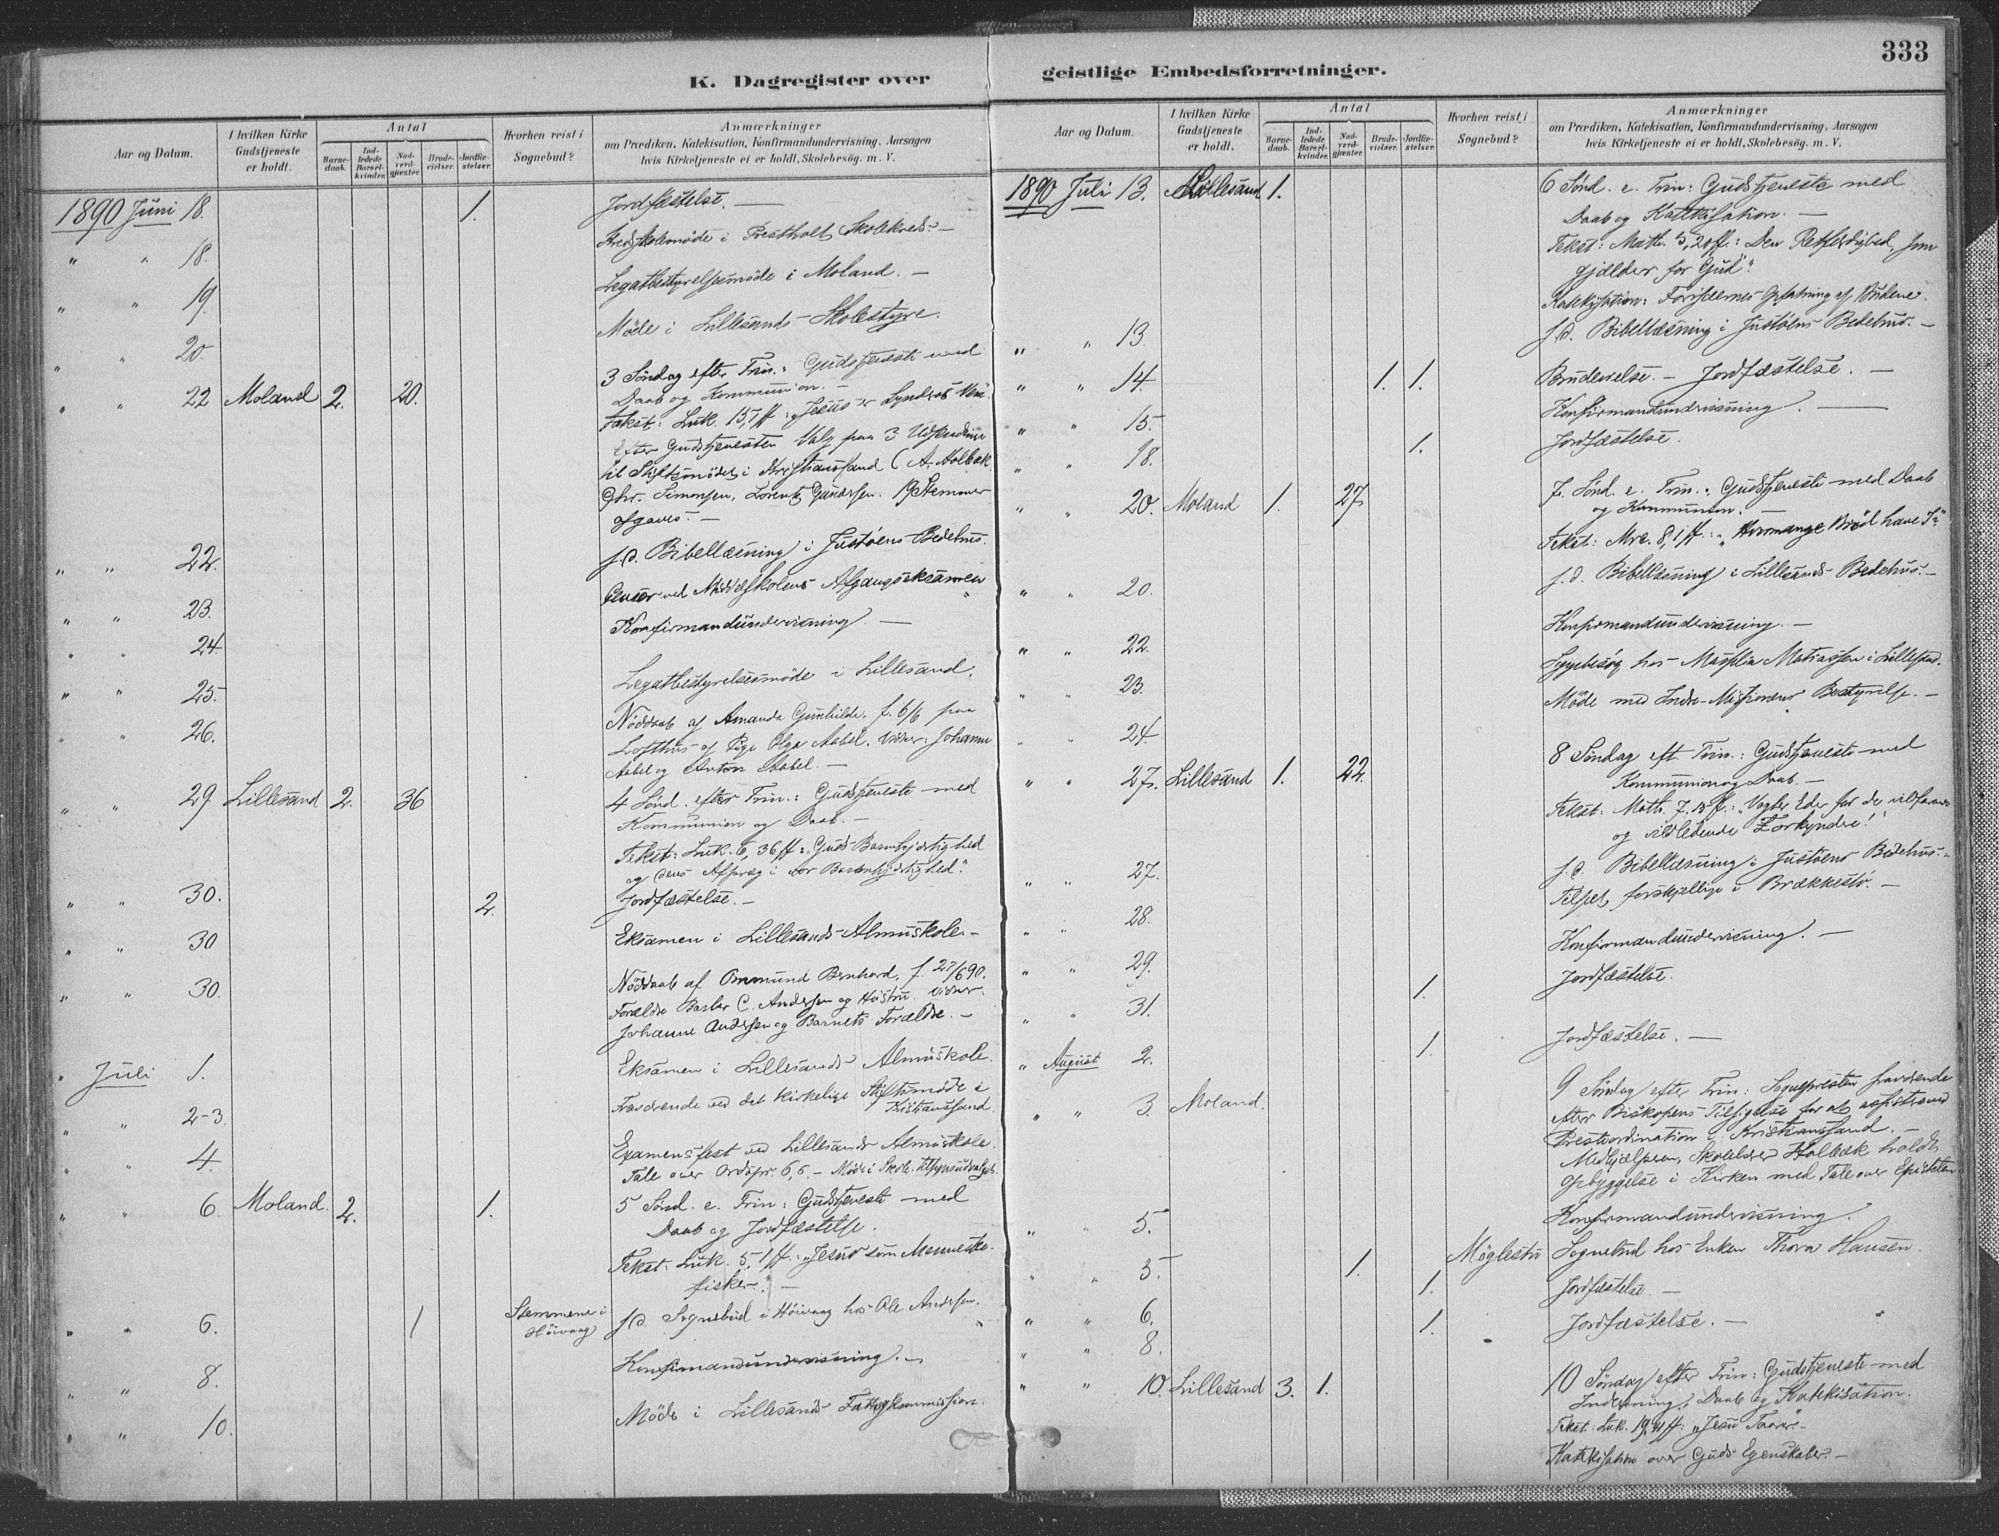 333
K. Dagregister over
Aar og Datum.
I hvilken Kirke Gudstjeneste er holdt.
Antal
Barnedaab.
Indledede Barselkvinder.
Nadverdgjæster.
Brudevielser.
Jordfæstelser.
Hvorhen reist i Sognebud?
Anmærkninger
om Prædiken, Katekisation, Konfirmandundervisning, Aarsagen
hvis Kirketjeneste ei er holdt, Skolebesøg. m. V.
1890 Juni 18. 1. Jordfæstelse. —
" " 18. Kredsskolemøde i Prestholt Skolekreds. —
" " 19. Legatbestyrelsesmøde i Moland. —
" " 20. Møde i Lillesands Skolestyre.
" " 22 Moland 2. 20. 3 Søndag efter Trin.: Gudstjeneste med
Daab og Kommunion. —
Tekst: Luk. 15,1ff: "Jesus er Synderes Ven"
Efter Gudstjenesten Valg paa 3 Udsendinge
til Stiftsmødet i Kristianssand (A. Aalbæk
Chr. Simonsen, Lorentz Gundersen. 19 Stemmer
afgaves. —
" " 22. s. d. Bibellæsning i Justøens Bedehus.
" " 23. Censor ved Middelskolens Afgangseksamen
" " 24. Konfirmandundervisning. —
" " 25. Legatbestyrelsesmøde i Lillesand.
" " 26. Nøddaab af Amanda Gunhilde, f. 6/6 paa
Lofthus af Pige Olga Aabel. Vidner: Johanne
Aabel og Anton Aabel. —
" " 29. Lillesand 2. 36 4 Sønd. efter Trin.: Gudstjeneste med
Kommunion og Daab. —
Tekst: Luk. 6, 36ff: "Guds Barmhjertighed
og dens Afpræg i vor Barmhjertighed."
" " 30. 2. Jordfæstelse. —
" " 30 Eksamen i Lillesands Almuskole. —
" " 30. Nøddaab af Ommund Bernhard, f. 27/6 90.
Forældre Basler C. Andersen og Hustru. Vidner:
Johanne Andersen og Barnets Forældre. —
" Juli 1. Eksamen i Lillesands Almuskole.
" " 2-3. Fraværende ved det kirkelige Stiftsmøde i
Kristianssand.
" " 4. Examensfest ved Lillesands Almuskole.
Tale over Ordspr. 6,6. — Møde i Skole-Tilsynsudvalget.
" " 6. Moland. 2. 1. 5 Sønd. e. Trin: Gudstjeneste med
Daab og Jordfæstelse.
Tekst: Luk. 5,1ff: "Jesus som Menneske-
fisker." —
" " 6. 1 Stemmene i Høivaag s. d. Sognebud i Høivaag hos Ole Andersen.
" " 8. Konfirmandundervisning. —
" " 10. Møde i Lillesands Fattigkommission.
geistlige Embedsforretninger.
Aar og Datum.
I hvilken Kirke Gudstjeneste er holdt.
Antal
Barnedaab.
Indledede Barselkvinder.
Nadverdgjæster.
Brudevielser.
Jordfæstelser.
Hvorhen reist i Sognebud?
Anmærkninger
om Prædiken, Katekisation, Konfirmandundervisning, Aarsagen
hvis Kirketjeneste ei er holdt, Skolebesøg. m. V.
1890 Juli 13. Lillesand 1. 6 Sønd. e. Trin: Gudstjeneste med
Daab og Katekisation. —
Tekst: Math. 5,20ff.: "Den Retfærdighed, som
gjælder for Gud".
Katekisation: Farisæernes Opfatning af Budene.
" " 13. s. d. Bibellæsning i Justøens Bedehus. —
" " 14 1. 1. Brudevielse. — Jordfæstelse. —
" " 15. Konfirmandundervisning. —
" " 18. 1. Jordfæstelse.
" " 20. Moland 1. 27. 7. Sønd. e. Trin.: Gudstjeneste med Daab
og Kommunion. —
Tekst: Mrc. 8,1ff: "Hvormange Brød have I?"
" " 20. s. d. Bibellæsning i Lillesands Bedehus. —
" " 22. Konfirmandundervisning. —
" " 23. Sygebesøg hos Matssen i Lillesand.
" " 24. Møde med Indre-Missionens Bestyrelse. —
" " 27. Lillesand 1. 22. 8 Søndag eft. Trin.: Gudstjeneste med
Kommunion og Daab. —
Tekst: Math. 7, 15ff.: "Vogter Eder for de vildfarne
og vildledende Forkyndre!"
" " 27. s. d. Bibellæsning i Justøens Bedehus. —
" " 28. Tilset forskjellige i Brækkestø. —
" " 29. Konfirmandundervisning. —
" " 31. 1. Jordfæstelse.
" August 2. 1. Jordfæstelse. —
" " 3. Moland. 9 Søndag efter Trin: Sognepresten fraværende
efter Biskopens Tilsigelse for at assistere ved
Presteordination i Kristianssand. —
Medhjælperen, Skolelærer Holbæk holdt
Opbyggelse i Kirken med Tale over Epistelen
" " 5. Konfirmandundervisning.
" " 5. 1. Møglestu Sognebud hos Enken Thora Hansen.
" " 6. 1. Jordfæstelse. —
" " 8. 1. Jordfæstelse. —
" " 10. Lillesand 3. 1. 10 Søndag efter Trin: Gudstjeneste med
Indledning, Daab og Katekisation.
Tekst: Luk. 19,41ff: "Jesu Taarer" —
Katekisation over Guds Egenskaber. —